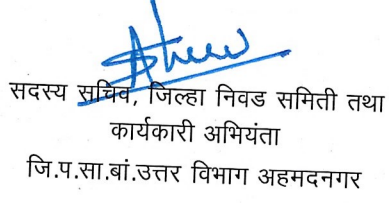 सदस्य सचिव, जिल्हा निवड समिती तथा
कार्यकारी अभियंता
जि.प.सा.बां.उत्तर विभाग अहमदनगर